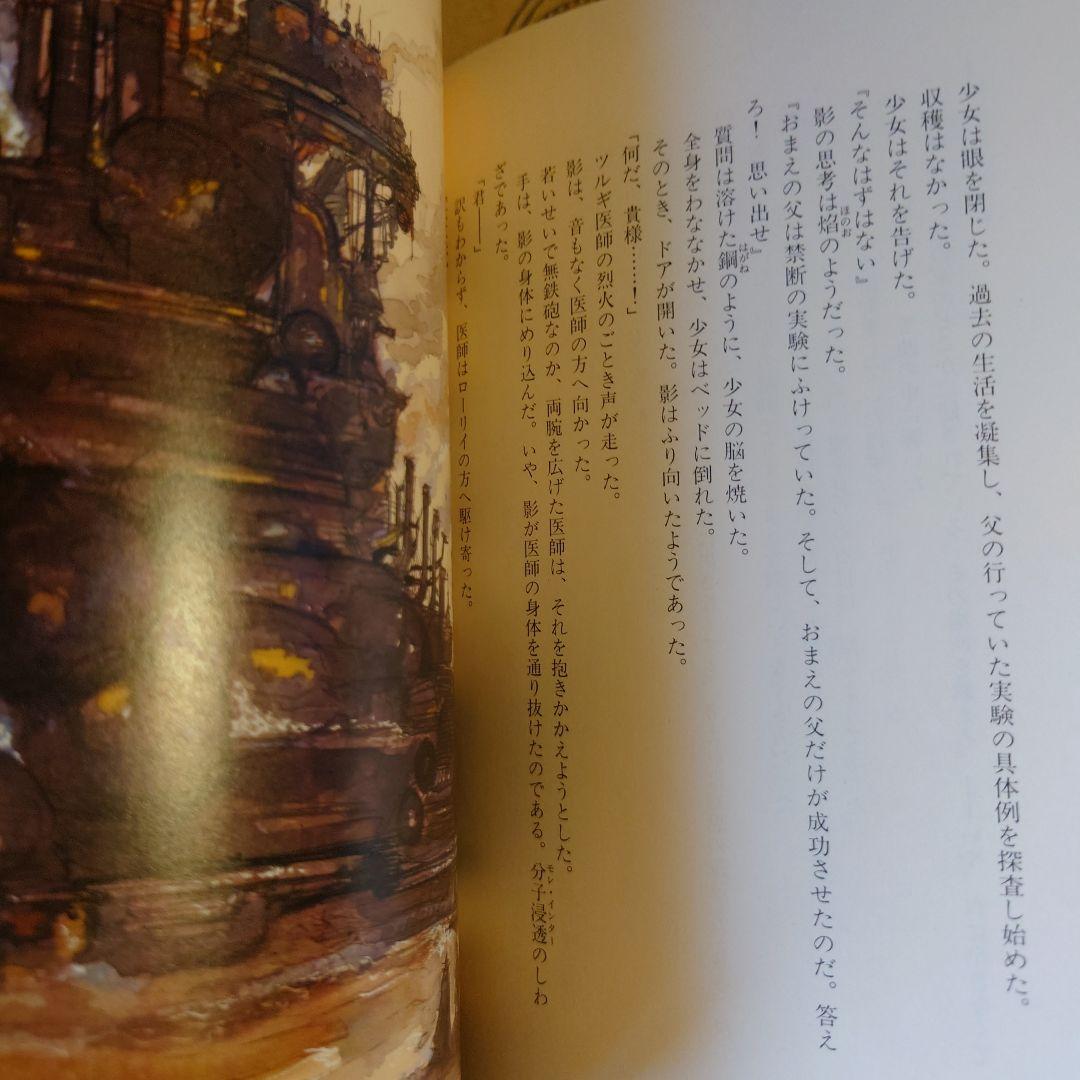 少女は眼を閉じた。過去の生活を凝集し、父の行っていた実験の具体例を探査し始めた。
収穫はなかった。
少女はそれを告げた。
『そんなはずはない』
影の思考は焰のようだった。
ほのお
『おまえの父は禁断の実験にふけっていた。そして、おまえの父だけが成功させたのだ。答え
ろ!　思い出せ』
質問は溶けた鋼のように、少女の脳を焼いた。
はがね
全身をわななかせ、少女はベッドに倒れた。
そのとき、ドアが開いた。影はふり向いたようであった。
「何だ、貴様……！」
ツルギ医師の烈火のごとき声が走った。
影は、音もなく医師の方へ向かった。
若いせいで無鉄砲なのか、両腕を広げた医師は、それを抱きかかえようとした。
手は、影の身体にめり込んだ。いや、影が医師の身体を通り抜けたのである。分子浸透のしわ
モレ・インター
ざであった。
「君――」
訳もわからず、医師はローリイの方へ駆け寄った。